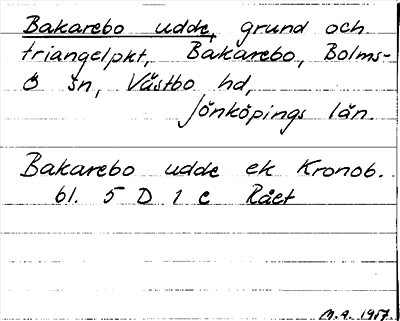 Bakarebo udde, grund och
triangelpkt, Bakarebo, Bolms-
Ö sn, Västbo hd,
Jönköpings län.
Bakarebo udde ek Kronob.
bl. 5 D 1 c Rået
M.A. 1957.